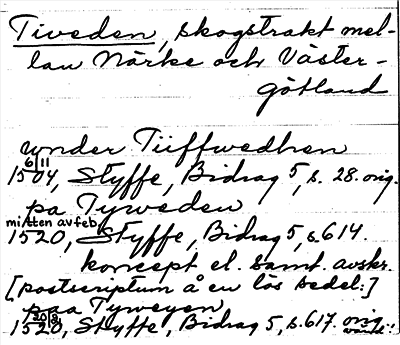 Tiveden, skogstrakt mel-
lan Närke och Väster-
götland
wnder Tiiffwedhen
6/11
1504, Styffe, Bidrag 5, s. 28. orig.
pa Tyweden
mitten av feb.
1520, Styffe, Bidrag 5, s. 614.
koncept el. samt. avskr.
[postscriptum å en lös sedel:]
paa Tyweyen
1520, Styffe, Bidrag 5, s. 617. orig.